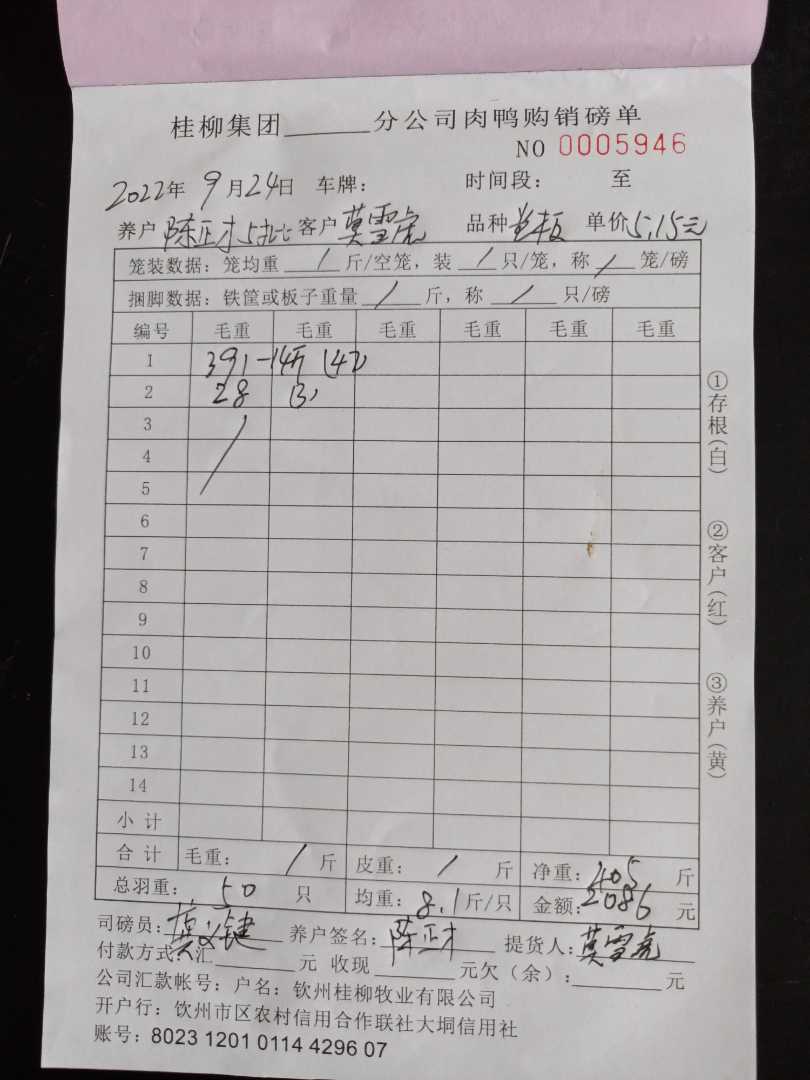 桂柳集团______分公司肉鸭购销磅单
NO 0005946
2022年 9月24日 车牌： 时间段： 至
养户 陈正才5批 客户 莫雪虎 品种 板 单价5.15元
笼装数据：笼均重 / 斤/空笼，装 / 只/笼，称 / 笼/磅
捆脚数据：铁筐或板子重量 / 斤，称 / 只/磅
编号 毛重 毛重 毛重 毛重 毛重 毛重
1 391-14斤 (47)
2 28 (3)
3
4
5
6
7
8
9
10
11
12
13
14
小计
合计 毛重： / 斤 皮重： / 斤 净重：405 斤
总羽重： 50 只 均重：8.1斤/只 金额：2086 元
司磅员：莫义键 养户签名：陈正才 提货人：莫雪虎
付款方式：汇______元 收现______元欠（余）：______元
公司汇款帐号：户名：钦州桂柳牧业有限公司
开户行：钦州市区农村信用合作联社大垌信用社
账号：8023 1201 0114 4296 07
①存根(白)
②客户(红)
③养户(黄)